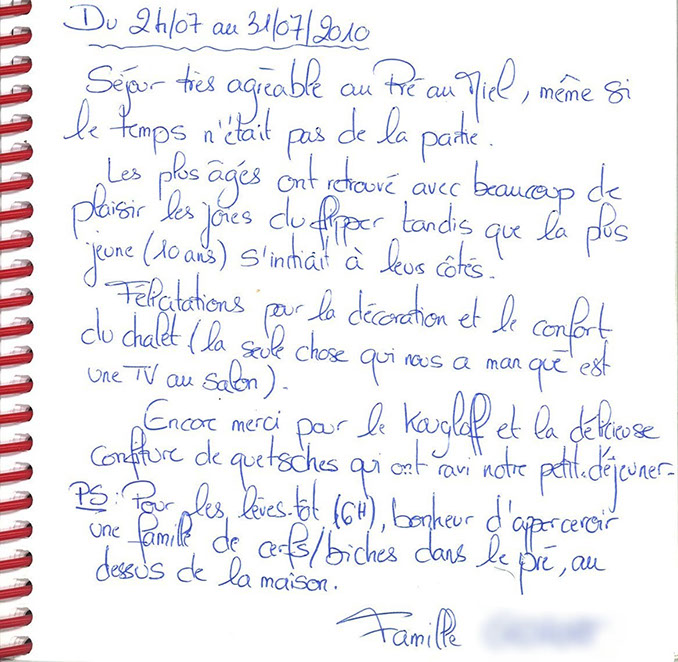 Du 24/07 au 31/07/2010
Séjour très agréable au Pré au Miel, même si
le temps n'était pas de la partie.
Les plus âgés ont retrouvé avec beaucoup de
plaisir les joies du flipper tandis que la plus
jeune (10 ans) s'initiait à leurs côtés.
Félicitations pour la décoration et le confort
du chalet (la seule chose qui nous a manqué est
une TV au salon).
Encore merci pour le Kougloff et la délicieuse
confiture de quetsches qui ont ravi notre petit-déjeuner-
PS: Pour les lèves-tôt (6H), bonheur d'appercevoir
une famille de cerfs/biches dans le pré, au
dessus de la maison.
Famille